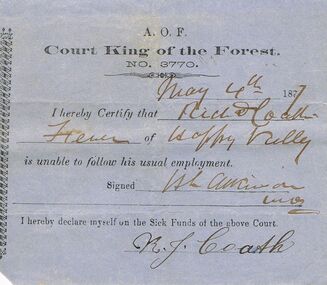 A. O. F.
Court King of the Forest.
NO. 3770.
May 4th 1877
I hereby Certify that Richd Coath
of Happy Vally
is unable to follow his usual employment.
Signed Atkinson
I hereby declare myself on the Sick Funds of the above Court.
R. J. Coath